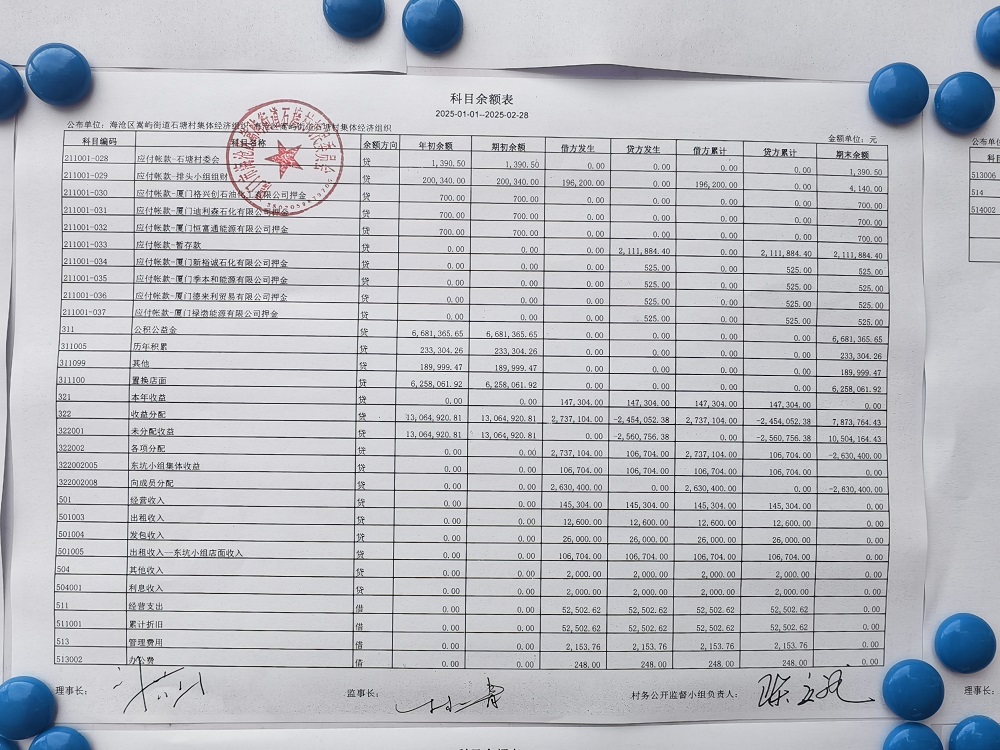 科目余额表
2025-01-01--2025-02-28
公布单位：海沧区嵩屿街道石塘村集体经济组织 金额单位：元
科目编码 科目名称 余额方向 年初余额 期初余额 借方发生 贷方发生 借方累计 贷方累计 期末余额
211001-028 应付帐款-石塘村委会 贷 1,390.50 1,390.50 0.00 0.00 0.00 0.00 1,390.50
211001-029 应付帐款-排头小组组财 贷 200,340.00 200,340.00 196,200.00 0.00 196,200.00 0.00 4,140.00
211001-030 应付帐款-厦门裕兴创石油化工有限公司押金 贷 700.00 700.00 0.00 0.00 0.00 0.00 700.00
211001-031 应付帐款-厦门迪利森石化有限公司押金 贷 700.00 700.00 0.00 0.00 0.00 0.00 700.00
211001-032 应付帐款-厦门恒富通能源有限公司押金 贷 700.00 700.00 0.00 0.00 0.00 0.00 700.00
211001-033 应付帐款-暂存款 贷 0.00 0.00 0.00 2,111,884.40 0.00 2,111,884.40 2,111,884.40
211001-034 应付帐款-厦门新裕诚石化有限公司押金 贷 0.00 0.00 0.00 525.00 0.00 525.00 525.00
211001-035 应付帐款-厦门季本和能源有限公司押金 贷 0.00 0.00 0.00 525.00 0.00 525.00 525.00
211001-036 应付帐款-厦门德来利贸易有限公司押金 贷 0.00 0.00 0.00 525.00 0.00 525.00 525.00
211001-037 应付帐款-厦门禄渤能源有限公司押金 贷 0.00 0.00 0.00 525.00 0.00 525.00 525.00
311 公积公益金 贷 6,681,365.65 6,681,365.65 0.00 0.00 0.00 0.00 6,681,365.65
311005 历年积累 贷 233,304.26 233,304.26 0.00 0.00 0.00 0.00 233,304.26
311099 其他 贷 189,999.47 189,999.47 0.00 0.00 0.00 0.00 189,999.47
311100 置换店面 贷 6,258,061.92 6,258,061.92 0.00 0.00 0.00 0.00 6,258,061.92
321 本年收益 贷 0.00 0.00 147,304.00 147,304.00 147,304.00 147,304.00 0.00
322 收益分配 贷 13,064,920.81 13,064,920.81 2,737,104.00 -2,454,052.38 2,737,104.00 -2,454,052.38 7,873,764.43
322001 未分配收益 贷 13,064,920.81 13,064,920.81 0.00 -2,560,756.38 0.00 -2,560,756.38 10,504,164.43
322002 各项分配 贷 0.00 0.00 2,737,104.00 106,704.00 2,737,104.00 106,704.00 -2,630,400.00
322002005 东坑小组集体收益 贷 0.00 0.00 106,704.00 106,704.00 106,704.00 106,704.00 0.00
322002008 向成员分配 贷 0.00 0.00 2,630,400.00 0.00 2,630,400.00 0.00 -2,630,400.00
501 经营收入 贷 0.00 0.00 145,304.00 145,304.00 145,304.00 145,304.00 0.00
501003 出租收入 贷 0.00 0.00 12,600.00 12,600.00 12,600.00 12,600.00 0.00
501004 发包收入 贷 0.00 0.00 26,000.00 26,000.00 26,000.00 26,000.00 0.00
501005 出租收入—东坑小组店面收入 贷 0.00 0.00 106,704.00 106,704.00 106,704.00 106,704.00 0.00
504 其他收入 贷 0.00 0.00 2,000.00 2,000.00 2,000.00 2,000.00 0.00
504001 利息收入 贷 0.00 0.00 2,000.00 2,000.00 2,000.00 2,000.00 0.00
511 经营支出 借 0.00 0.00 52,502.62 52,502.62 52,502.62 52,502.62 0.00
511001 累计折旧 借 0.00 0.00 52,502.62 52,502.62 52,502.62 52,502.62 0.00
513 管理费用 借 0.00 0.00 2,153.76 2,153.76 2,153.76 2,153.76 0.00
513002 办公费 借 0.00 0.00 248.00 248.00 248.00 248.00 0.00
理事长： 监事长： 村务公开监督小组负责人：
公布单
科目编
513006
514
514002
理事长：